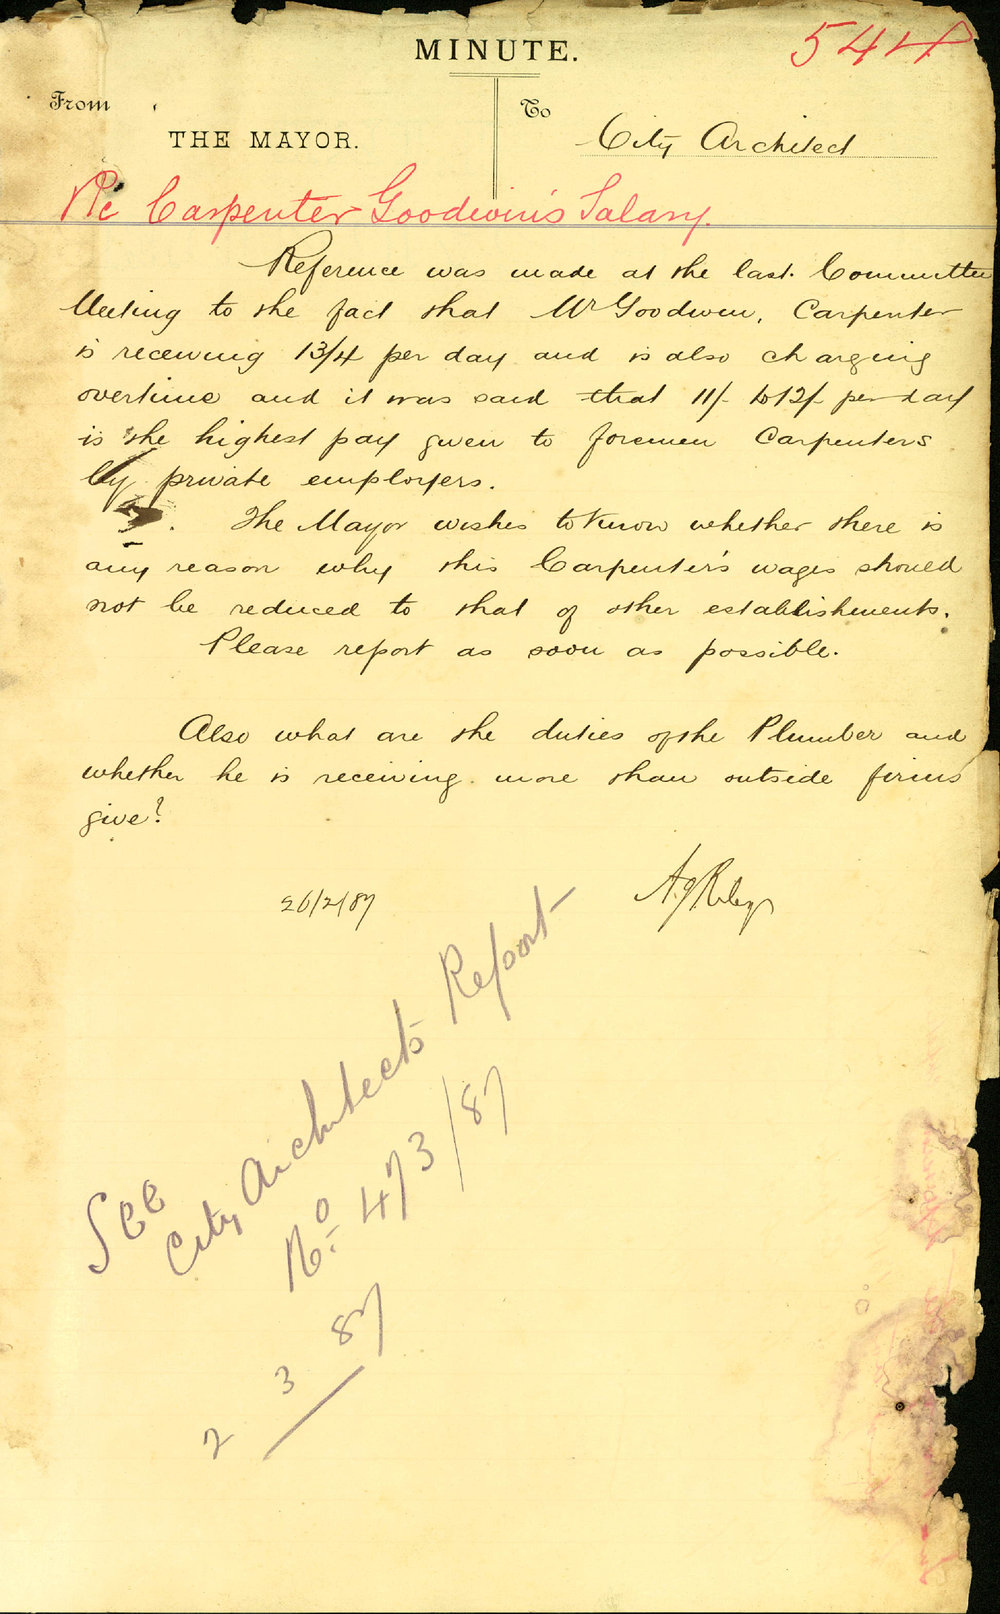 MINUTE.
544
From
To
THE MAYOR.
City Architect
Re Carpenter Goodwin's Salary.
Reference was made at the last Committee
Meeting to the fact that Mr Goodwin, Carpenter
is receiving 13/4 per day and is also charging
overtime and it was said that 11/- to 12/- per day
is the highest pay given to foremen Carpenters
by private employers.
The Mayor wishes to know whether there is
any reason why this Carpenter's wages should
not be reduced to that of other establishments.
Please report as soon as possible.
Also what are the duties of the Plumber and
whether he is receiving more than outside firms
give?
26/2/87
A J Riley
See
City Architects Report
No. 473/87
2 3 87